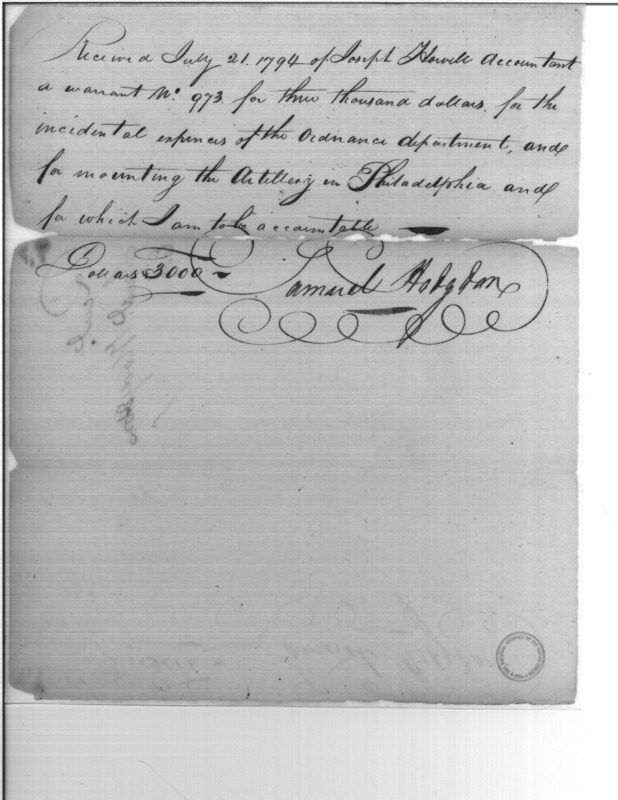 Received July 21. 1794 of Joseph Howell Accountant
a warrant No. 973. for three thousand dollars. for the
incidental expences of the Ordnance department, and
for mounting the Artillery in Philadelphia and
for which I am to be accountable
Dollars 3000
Samuel Hodgdon